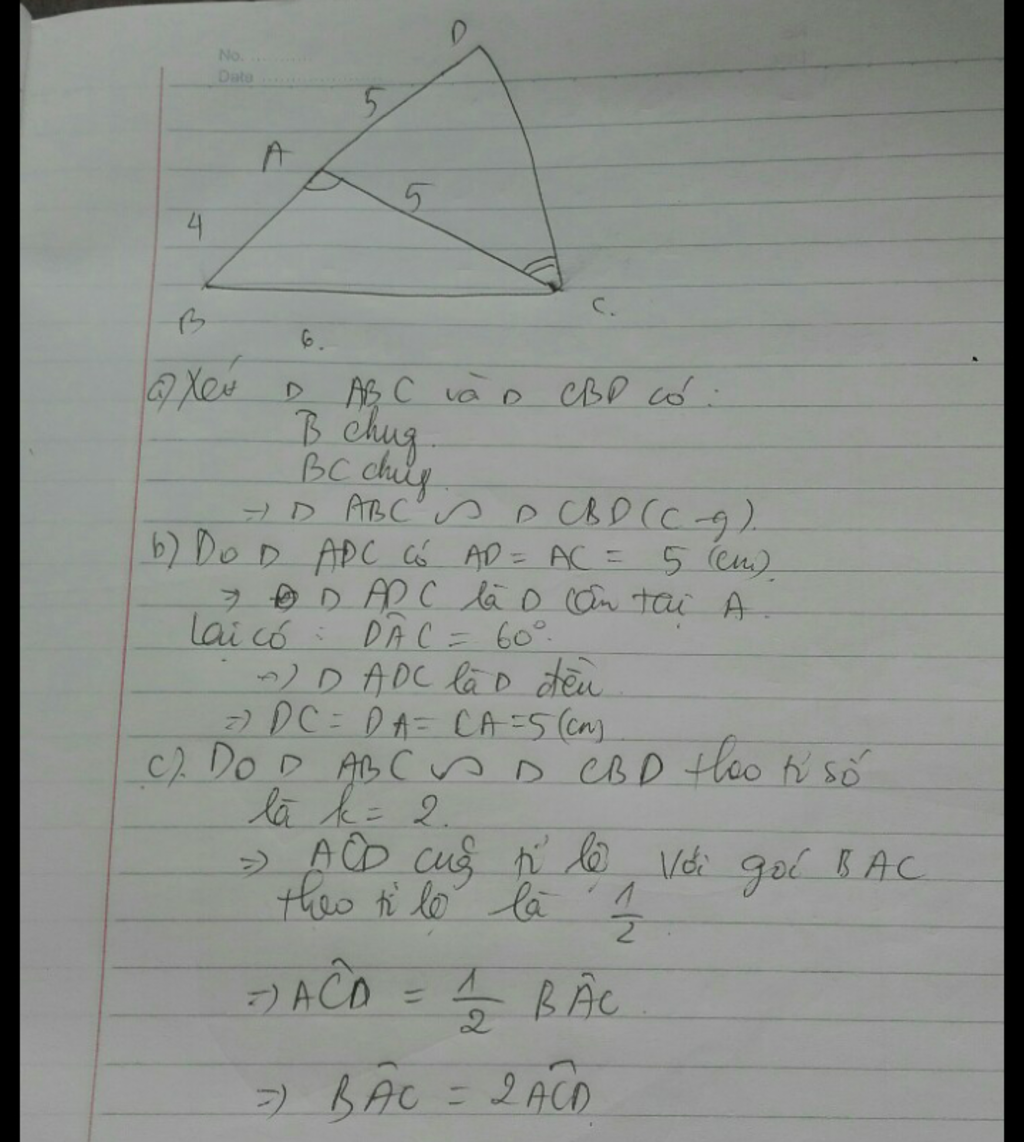 No. ............
Date ....................
D
5
A
5
4
B
C.
6.
a) Xét Δ ABC và Δ CBD có:
B chug.
BC chug
=> Δ ABC ∽ Δ CBD (c-g).
b) Do Δ ADC có AD = AC = 5 (cm)
=> Δ ADC là Δ cân tại A.
Lại có : DÂC = 60°.
=> Δ ADC là Δ đều
=> DC = DA = CA = 5 (cm)
c). Do Δ ABC ∽ Δ CBD theo tỉ số
là k = 2.
=> AĈD cug̃ tỉ lệ với góc BAC
theo tỉ lệ là 1/2.
=> AĈD = 1/2 BÂC.
=> BÂC = 2AĈD